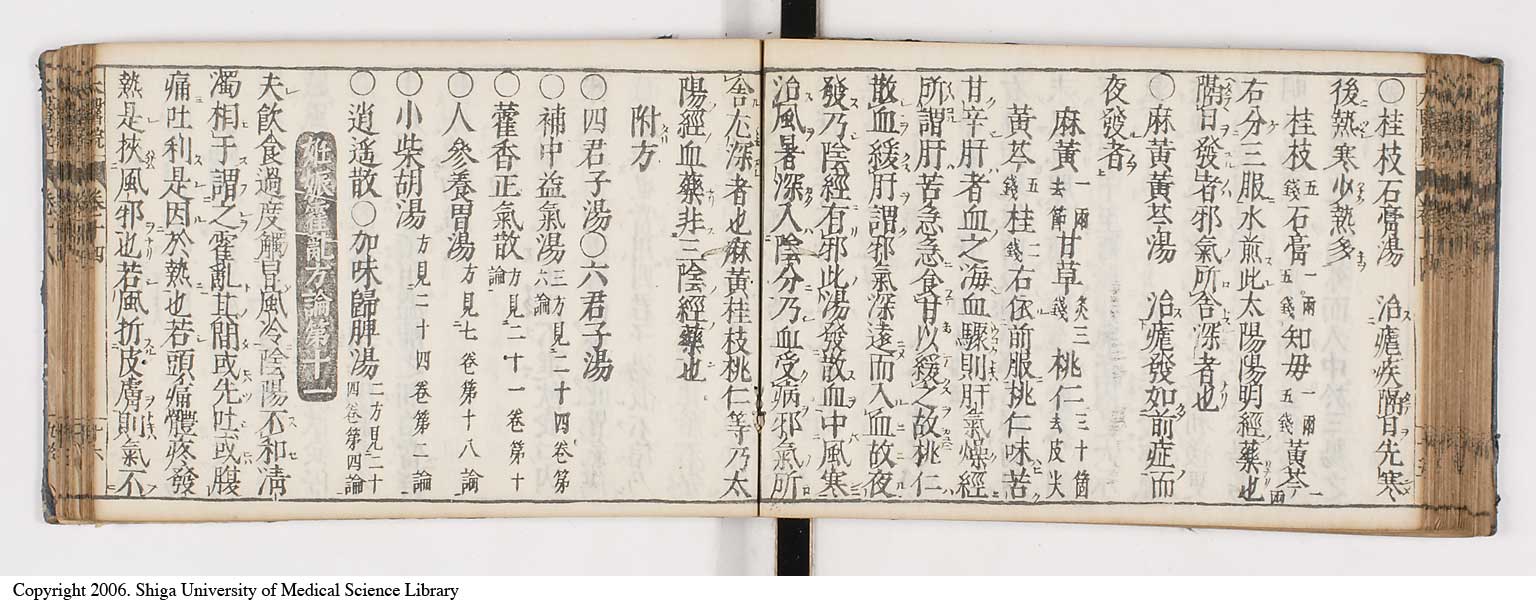 ○桂枝石膏湯　治瘧疾隔日先寒
後熱寒少熱多
桂枝五錢石膏一兩五錢知母一兩五錢黃芩一兩
右分三服水煎此太陽陽明經藥也
隔日發者邪氣所舍深者也
○麻黃黃芩湯　治瘧發如前症而
夜發者
麻黃一兩去節甘草炙三錢桃仁三十箇去皮尖
黃芩五錢桂二錢右依前服桃仁味苦
甘辛肝者血之海血驟則肝氣燥經
所謂肝苦急急食甘以緩之故桃仁
散血緩肝謂邪氣深遠而入血故夜
發乃陰經有邪此湯發散血中風寒
治風暑深入陰分乃血受病邪氣所
舍尤深者也麻黃桂枝桃仁等乃太
陽經血藥非三陰經藥也
附方
○四君子湯○六君子湯
○補中益氣湯三方見二十四卷第六論
○藿香正氣散方見二十一卷第十論
○人參養胃湯方見七卷第十八論
○小柴胡湯方見二十四卷第二論
○逍遥散○加味歸脾湯二方見二十四卷第四論
妊娠霍亂方論第十一
夫飲食過度觸冒風冷陰陽不和清
濁相干謂之霍亂其間或先吐或腹
痛吐利是因於熱也若頭痛體疼發
熱是挾風邪也若風折皮膚則氣不
Copyright 2006. Shiga University of Medical Science Library